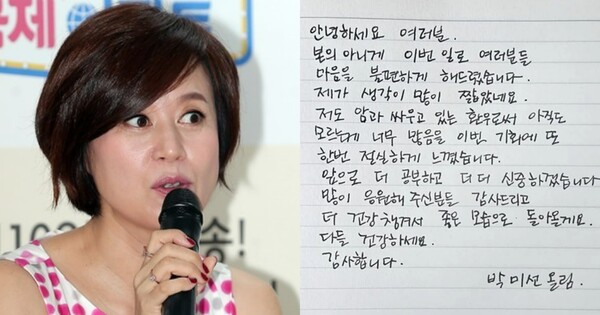 국제
102
송!
안녕하세요 여러분.
본의 아니게 이번 일로 여러분들
마음을 불편하게 해드렸습니다.
제가 생각이 많이 짧았네요.
저도 암과 싸우고 있는 환우로써 아직도
모르는게 너무 많음을 이번 기회에 또
한번 절실하게 느꼈습니다.
앞으로 더 공부하고 더 더 신중하겠습니다
많이 응원해 주신분들 감사드리고
더 건강챙겨서 좋은 모습으로 돌아올게요.
다들 건강하세요.
감사합니다.
박미선 올림.